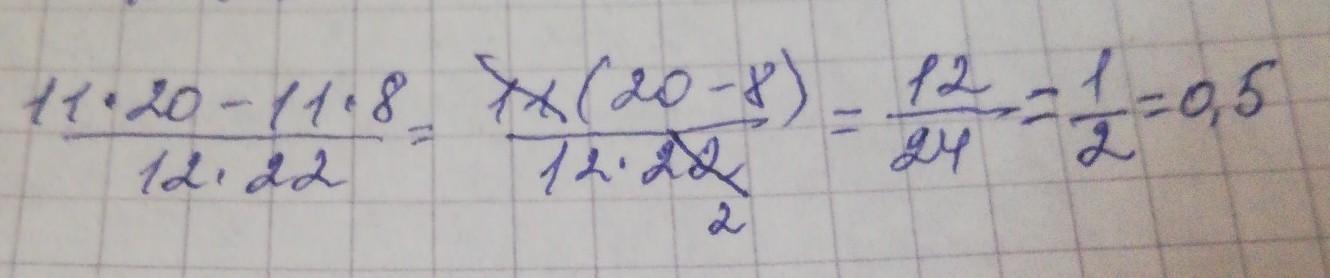 11·20-11·8/12·22 = 11(20-8)/12·22 2 = 12/24 = 1/2 = 0,5